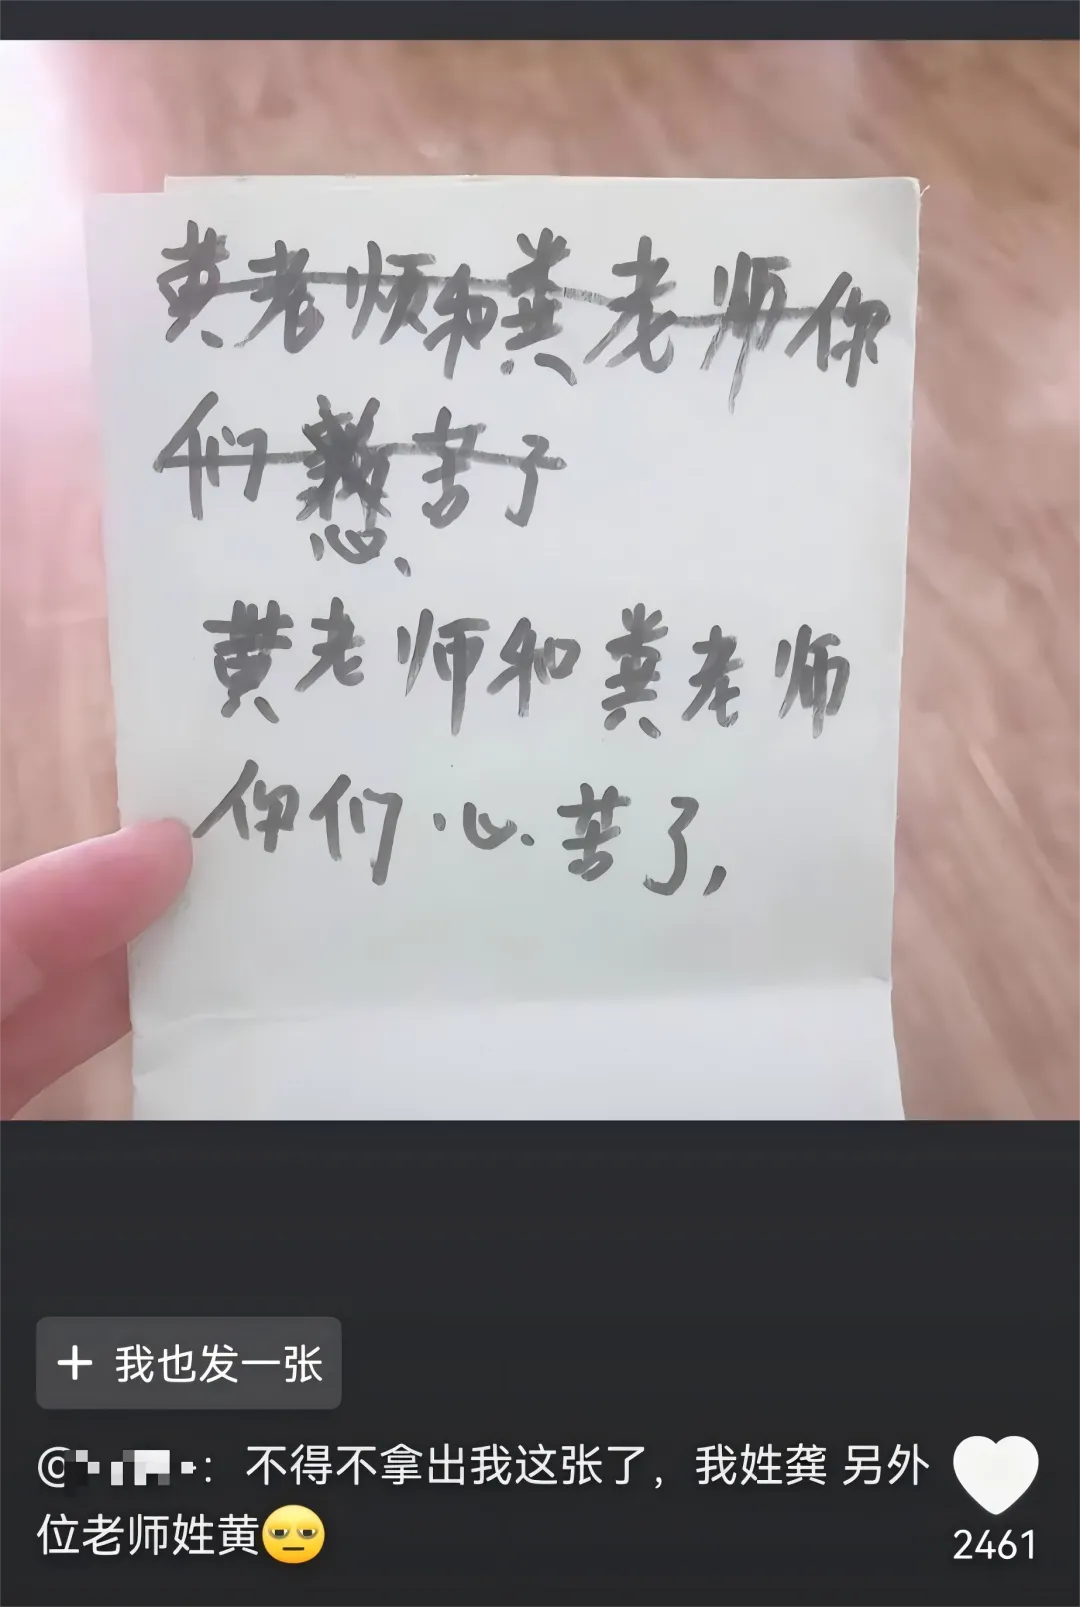 黄老师和粪老师你
们苦了
心、
黄老师和粪老师
你们心苦了,
+ 我也发一张
@: 不得不拿出我这张了，我姓龚 另外
位老师姓黄
2461